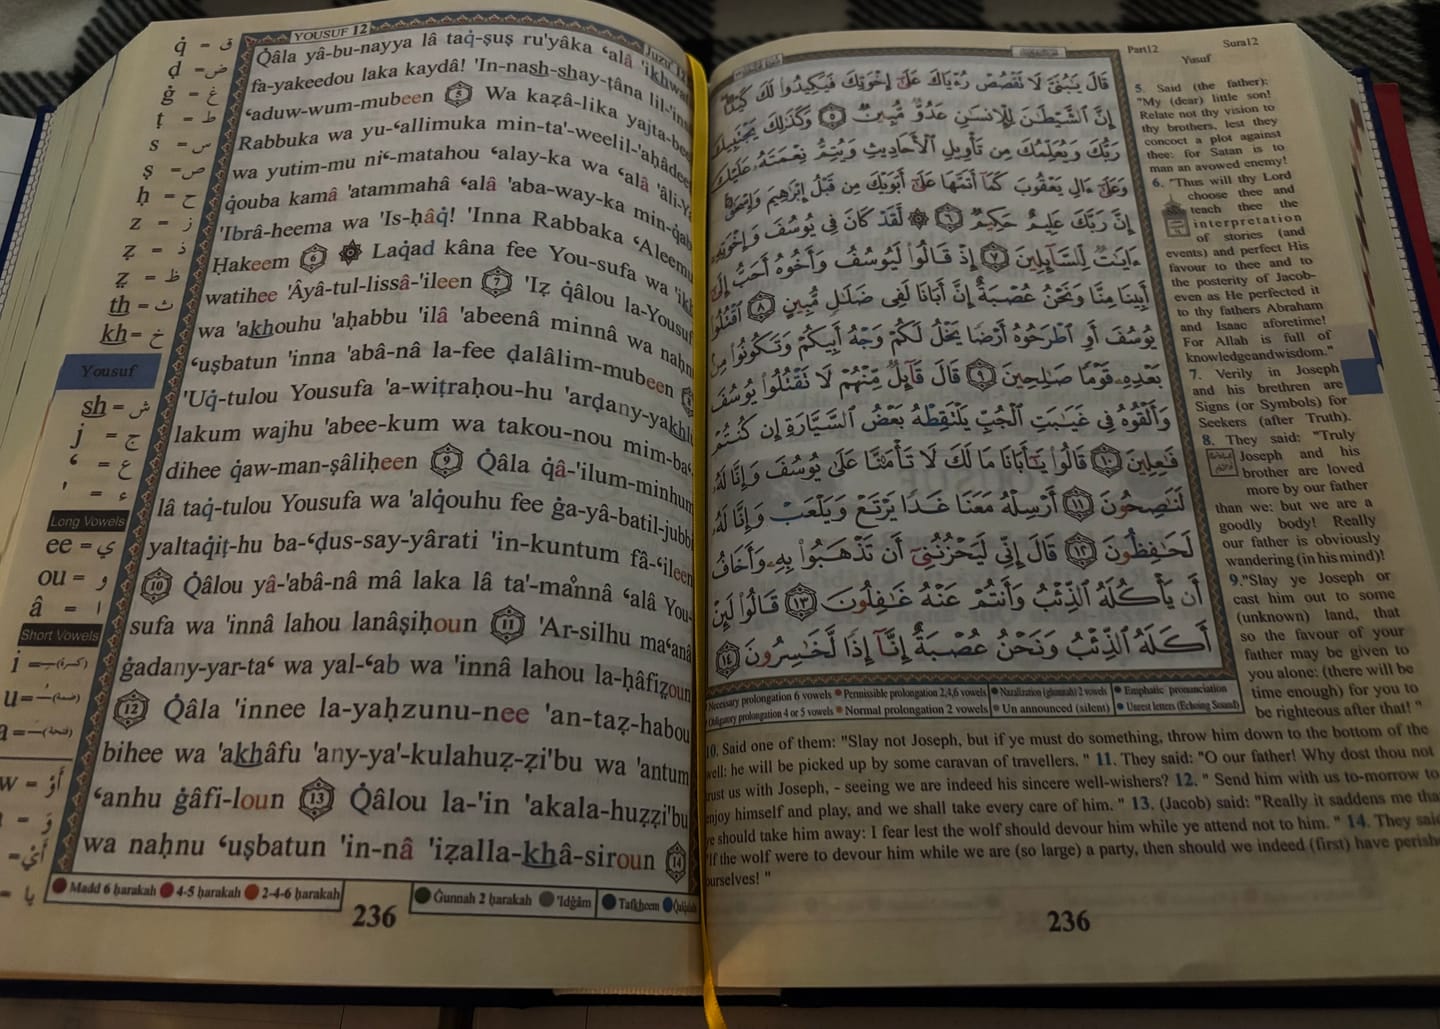 YOUSUF 12
Juzu' 12
Q̇âla yâ-bu-nayya lâ taq̇-ṣuṣ ru'yâka ʿalâ 'ikhwat
fa-yakeedou laka kaydâ! 'In-nash-shay-ṭâna lil-'ins
ʿaduw-wum-mubeen 5 Wa kaẓâ-lika yajta-bee
Rabbuka wa yu-ʿallimuka min-ta'-weelil-'aḥâdee
wa yutim-mu niʿ-matahou ʿalay-ka wa ʿalâ 'âli-Ya
q̇ouba kamâ 'atammahâ ʿalâ 'aba-way-ka min-q̇ab
'Ibrâ-heema wa 'Is-ḥâq̇! 'Inna Rabbaka ʿAleemu
Ḥakeem 6 ۞ Laq̇ad kâna fee You-sufa wa 'ikh
watihee 'Âyâ-tul-lissâ-'ileen 7 'Iẓ q̇âlou la-Yousuf
wa 'akhouhu 'aḥabbu 'ilâ 'abeenâ minnâ wa naḥn
ʿuṣbatun 'inna 'abâ-nâ la-fee ḍalâlim-mubeen 8
'Uq̇-tulou Yousufa 'a-wiṭraḥou-hu 'arḍany-yakhl
lakum wajhu 'abee-kum wa takou-nou mim-baʿ
dihee q̇aw-man-ṣâliḥeen 9 Q̇âla q̇â-'ilum-minhum
lâ taq̇-tulou Yousufa wa 'alq̇ouhu fee ġa-yâ-batil-jubbi
yaltaq̇iṭ-hu ba-ʿḍus-say-yârati 'in-kuntum fâ-ʿileen
10 Q̇âlou yâ-'abâ-nâ mâ laka lâ ta'-mannâ ʿalâ You-
sufa wa 'innâ lahou lanâṣiḥoun 11 'Ar-silhu maʿanâ
ġadany-yar-taʿ wa yal-ʿab wa 'innâ lahou la-ḥâfiẓoun
12 Q̇âla 'innee la-yaḥzunu-nee 'an-taẓ-habou
bihee wa 'akhâfu 'any-ya'-kulahuẓ-ẓi'bu wa 'antum
ʿanhu ġâfi-loun 13 Q̇âlou la-'in 'akala-huẓẓi'bu
wa naḥnu ʿuṣbatun 'in-nâ 'iẓalla-khâ-siroun 14
q̇ = ق
ḍ = ض
ġ = غ
ṭ = ط
s = س
ṣ = ص
ḥ = ح
z = ز
ẓ = ذ
ẓ̣ = ظ
th = ث
kh = خ
Yousuf
sh = ش
j = ج
ʿ = ع
' = ء
Long Vowels
ee = ي
ou = و
â = ا
Short Vowels
i = (كسرة)
u = (ضمة)
a = (فتحة)
w = أوْ
وَ
= أيْ
= يا
Madd 6 ḥarakah 4-5 ḥarakah 2-4-6 ḥarakah
Ġunnah 2 ḥarakah 'Idġâm Tafkheem Q̇alq̇alah
236
Part12 Sura12
Yusuf
قَالَ يَٰبُنَىَّ لَا تَقْصُصْ رُءْيَاكَ عَلَىٰٓ إِخْوَتِكَ فَيَكِيدُوا۟ لَكَ كَيْدًا
إِنَّ ٱلشَّيْطَٰنَ لِلْإِنسَٰنِ عَدُوٌّ مُّبِينٌ ٥ وَكَذَٰلِكَ يَجْتَبِيكَ
رَبُّكَ وَيُعَلِّمُكَ مِن تَأْوِيلِ ٱلْأَحَادِيثِ وَيُتِمُّ نِعْمَتَهُۥ عَلَيْكَ
وَعَلَىٰٓ ءَالِ يَعْقُوبَ كَمَآ أَتَمَّهَا عَلَىٰٓ أَبَوَيْكَ مِن قَبْلُ إِبْرَٰهِيمَ وَإِسْحَٰقَ
إِنَّ رَبَّكَ عَلِيمٌ حَكِيمٌ ٦ ۞ لَّقَدْ كَانَ فِى يُوسُفَ وَإِخْوَتِهِۦٓ
ءَايَٰتٌ لِّلسَّآئِلِينَ ٧ إِذْ قَالُوا۟ لَيُوسُفُ وَأَخُوهُ أَحَبُّ إِلَىٰٓ
أَبِينَا مِنَّا وَنَحْنُ عُصْبَةٌ إِنَّ أَبَانَا لَفِى ضَلَٰلٍ مُّبِينٍ ٨ ٱقْتُلُوا۟
يُوسُفَ أَوِ ٱطْرَحُوهُ أَرْضًا يَخْلُ لَكُمْ وَجْهُ أَبِيكُمْ وَتَكُونُوا۟ مِنۢ
بَعْدِهِۦ قَوْمًا صَٰلِحِينَ ٩ قَالَ قَآئِلٌ مِّنْهُمْ لَا تَقْتُلُوا۟ يُوسُفَ
وَأَلْقُوهُ فِى غَيَٰبَتِ ٱلْجُبِّ يَلْتَقِطْهُ بَعْضُ ٱلسَّيَّارَةِ إِن كُنتُمْ
فَٰعِلِينَ ١٠ قَالُوا۟ يَٰٓأَبَانَا مَا لَكَ لَا تَأْمَ۫نَّا عَلَىٰ يُوسُفَ وَإِنَّا لَهُۥ
لَنَٰصِحُونَ ١١ أَرْسِلْهُ مَعَنَا غَدًا يَرْتَعْ وَيَلْعَبْ وَإِنَّا لَهُۥ
لَحَٰفِظُونَ ١٢ قَالَ إِنِّى لَيَحْزُنُنِىٓ أَن تَذْهَبُوا۟ بِهِۦ وَأَخَافُ
أَن يَأْكُلَهُ ٱلذِّئْبُ وَأَنتُمْ عَنْهُ غَٰفِلُونَ ١٣ قَالُوا۟ لَئِنْ
أَكَلَهُ ٱلذِّئْبُ وَنَحْنُ عُصْبَةٌ إِنَّآ إِذًا لَّخَٰسِرُونَ ١٤
Necessary prolongation 6 vowels Permissible prolongation 2,4,6 vowels Nazalization (ghunnah) 2 vowels Emphatic pronunciation
Obligatory prolongation 4 or 5 vowels Normal prolongation 2 vowels Un announced (silent) Unrest letters (Echoing Sound)
5. Said (the father):
"My (dear) little son!
Relate not thy vision to
thy brothers, lest they
concoct a plot against
thee: for Satan is to
man an avowed enemy!
6. "Thus will thy Lord
choose thee and
teach thee the
interpretation
of stories (and
events) and perfect His
favour to thee and to
the posterity of Jacob-
even as He perfected it
to thy fathers Abraham
and Isaac aforetime!
For Allah is full of
knowledgeandwisdom."
7. Verily in Joseph
and his brethren are
Signs (or Symbols) for
Seekers (after Truth).
8. They said: "Truly
Joseph and his
brother are loved
more by our father
than we: but we are a
goodly body! Really
our father is obviously
wandering (in his mind)!
9."Slay ye Joseph or
cast him out to some
(unknown) land, that
so the favour of your
father may be given to
you alone: (there will be
time enough) for you to
be righteous after that! "
10. Said one of them: "Slay not Joseph, but if ye must do something, throw him down to the bottom of the
well: he will be picked up by some caravan of travellers. " 11. They said: "O our father! Why dost thou not
trust us with Joseph, - seeing we are indeed his sincere well-wishers? 12. " Send him with us to-morrow to
enjoy himself and play, and we shall take every care of him. " 13. (Jacob) said: "Really it saddens me that
ye should take him away: I fear lest the wolf should devour him while ye attend not to him. " 14. They said
"If the wolf were to devour him while we are (so large) a party, then should we indeed (first) have perished
ourselves! "
236